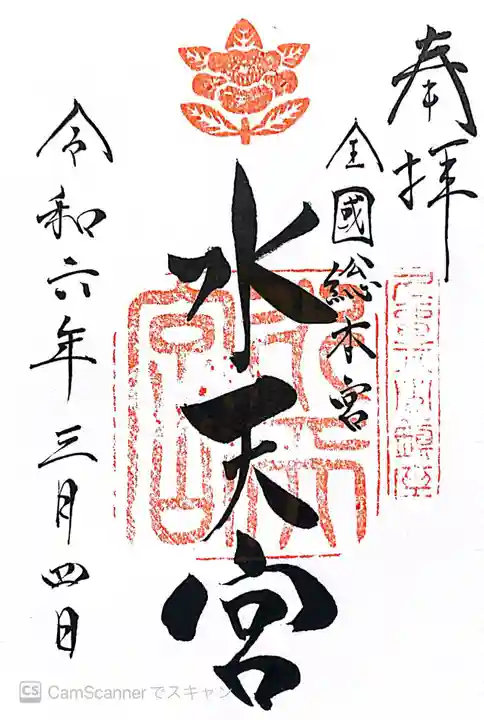 奉拝
全国総本宮
水天宮
令和六年三月四日
CS CamScannerでスキャン